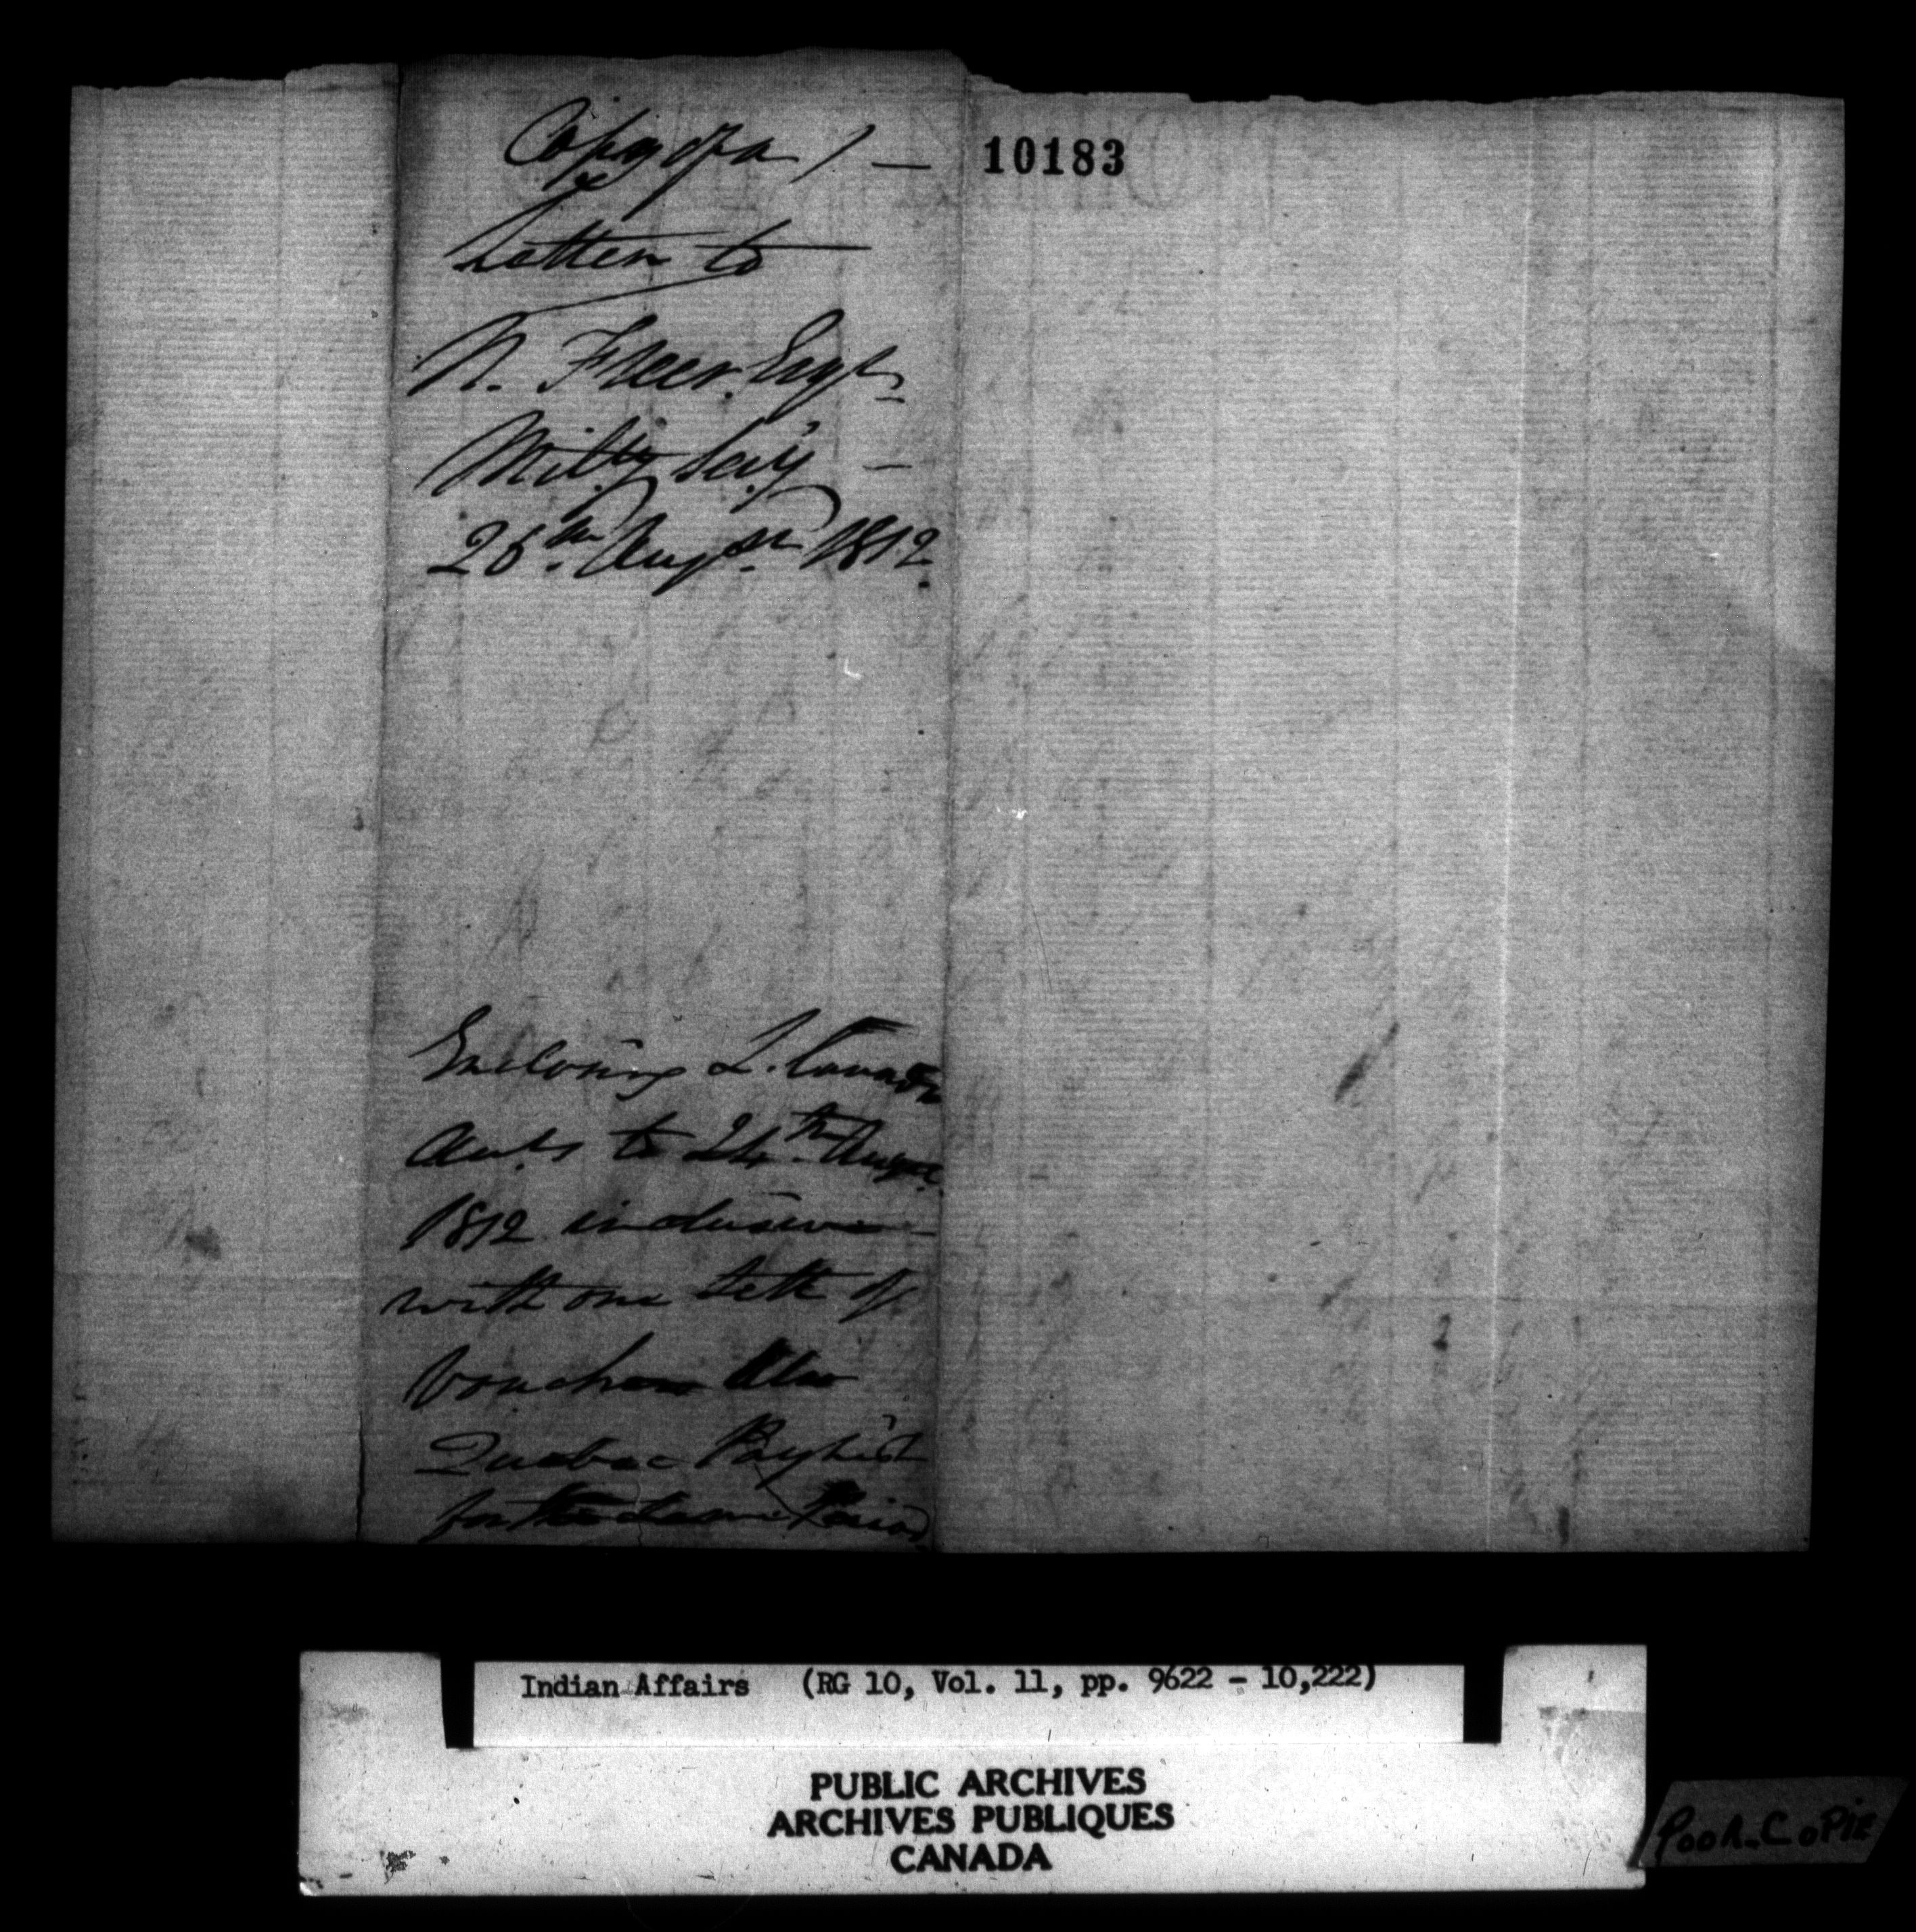 Copy of a / —
10183
Letter to
N. Freer Esqr
Milty Secy —
26th Augst 1812.
Enclosing L. Canada
Accts to 24th Augst
1812 inclusive —
with one Sett of
Vouchers Also
Quebec Paylist
for the same Period
Indian Affairs (RG 10, Vol. 11, pp. 9622 - 10,222)
PUBLIC ARCHIVES
ARCHIVES PUBLIQUES
CANADA
POOR COPIE